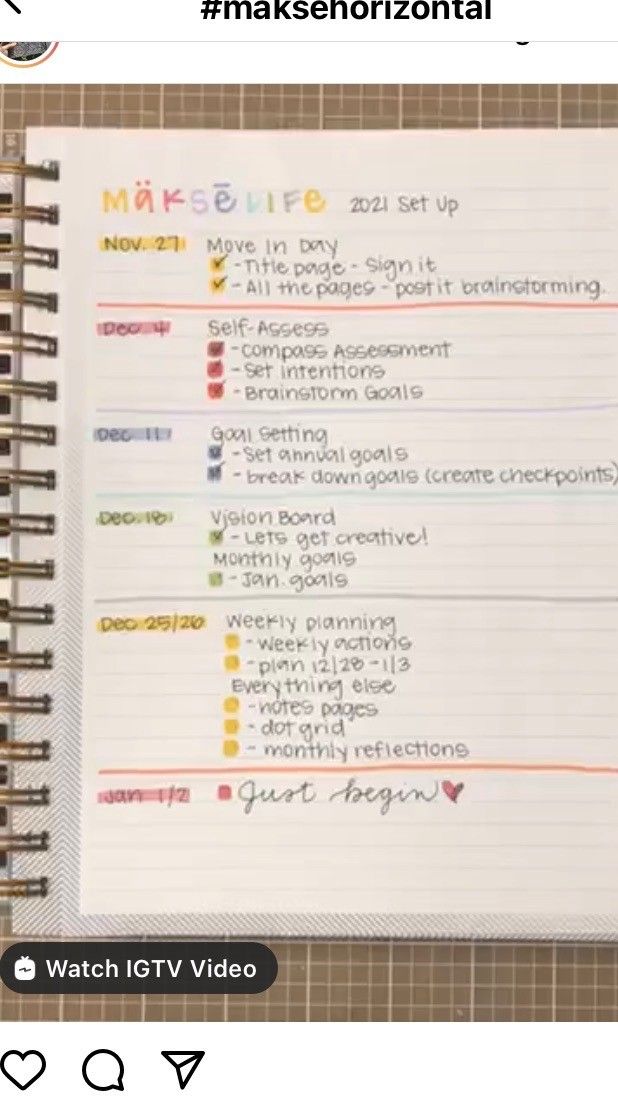 #maksehorizontal
MäKSē LIFE 2021 Set Up
Nov. 27 Move In Day
- Title page - Sign it
- All the pages - post it brainstorming.
Dec 4 Self-Assess
- Compass Assessment
- Set Intentions
- Brainstorm Goals
Dec 11 Goal Setting
- Set annual goals
- break down goals (create checkpoints)
Dec. 18 Vision Board
- Lets get creative!
Monthly goals
- Jan. goals
Dec 25/26 Weekly planning
- weekly actions
- plan 12/28 - 1/3
Everything else
- notes pages
- dot grid
- monthly reflections
Jan 1/2 Just begin
Watch IGTV Video